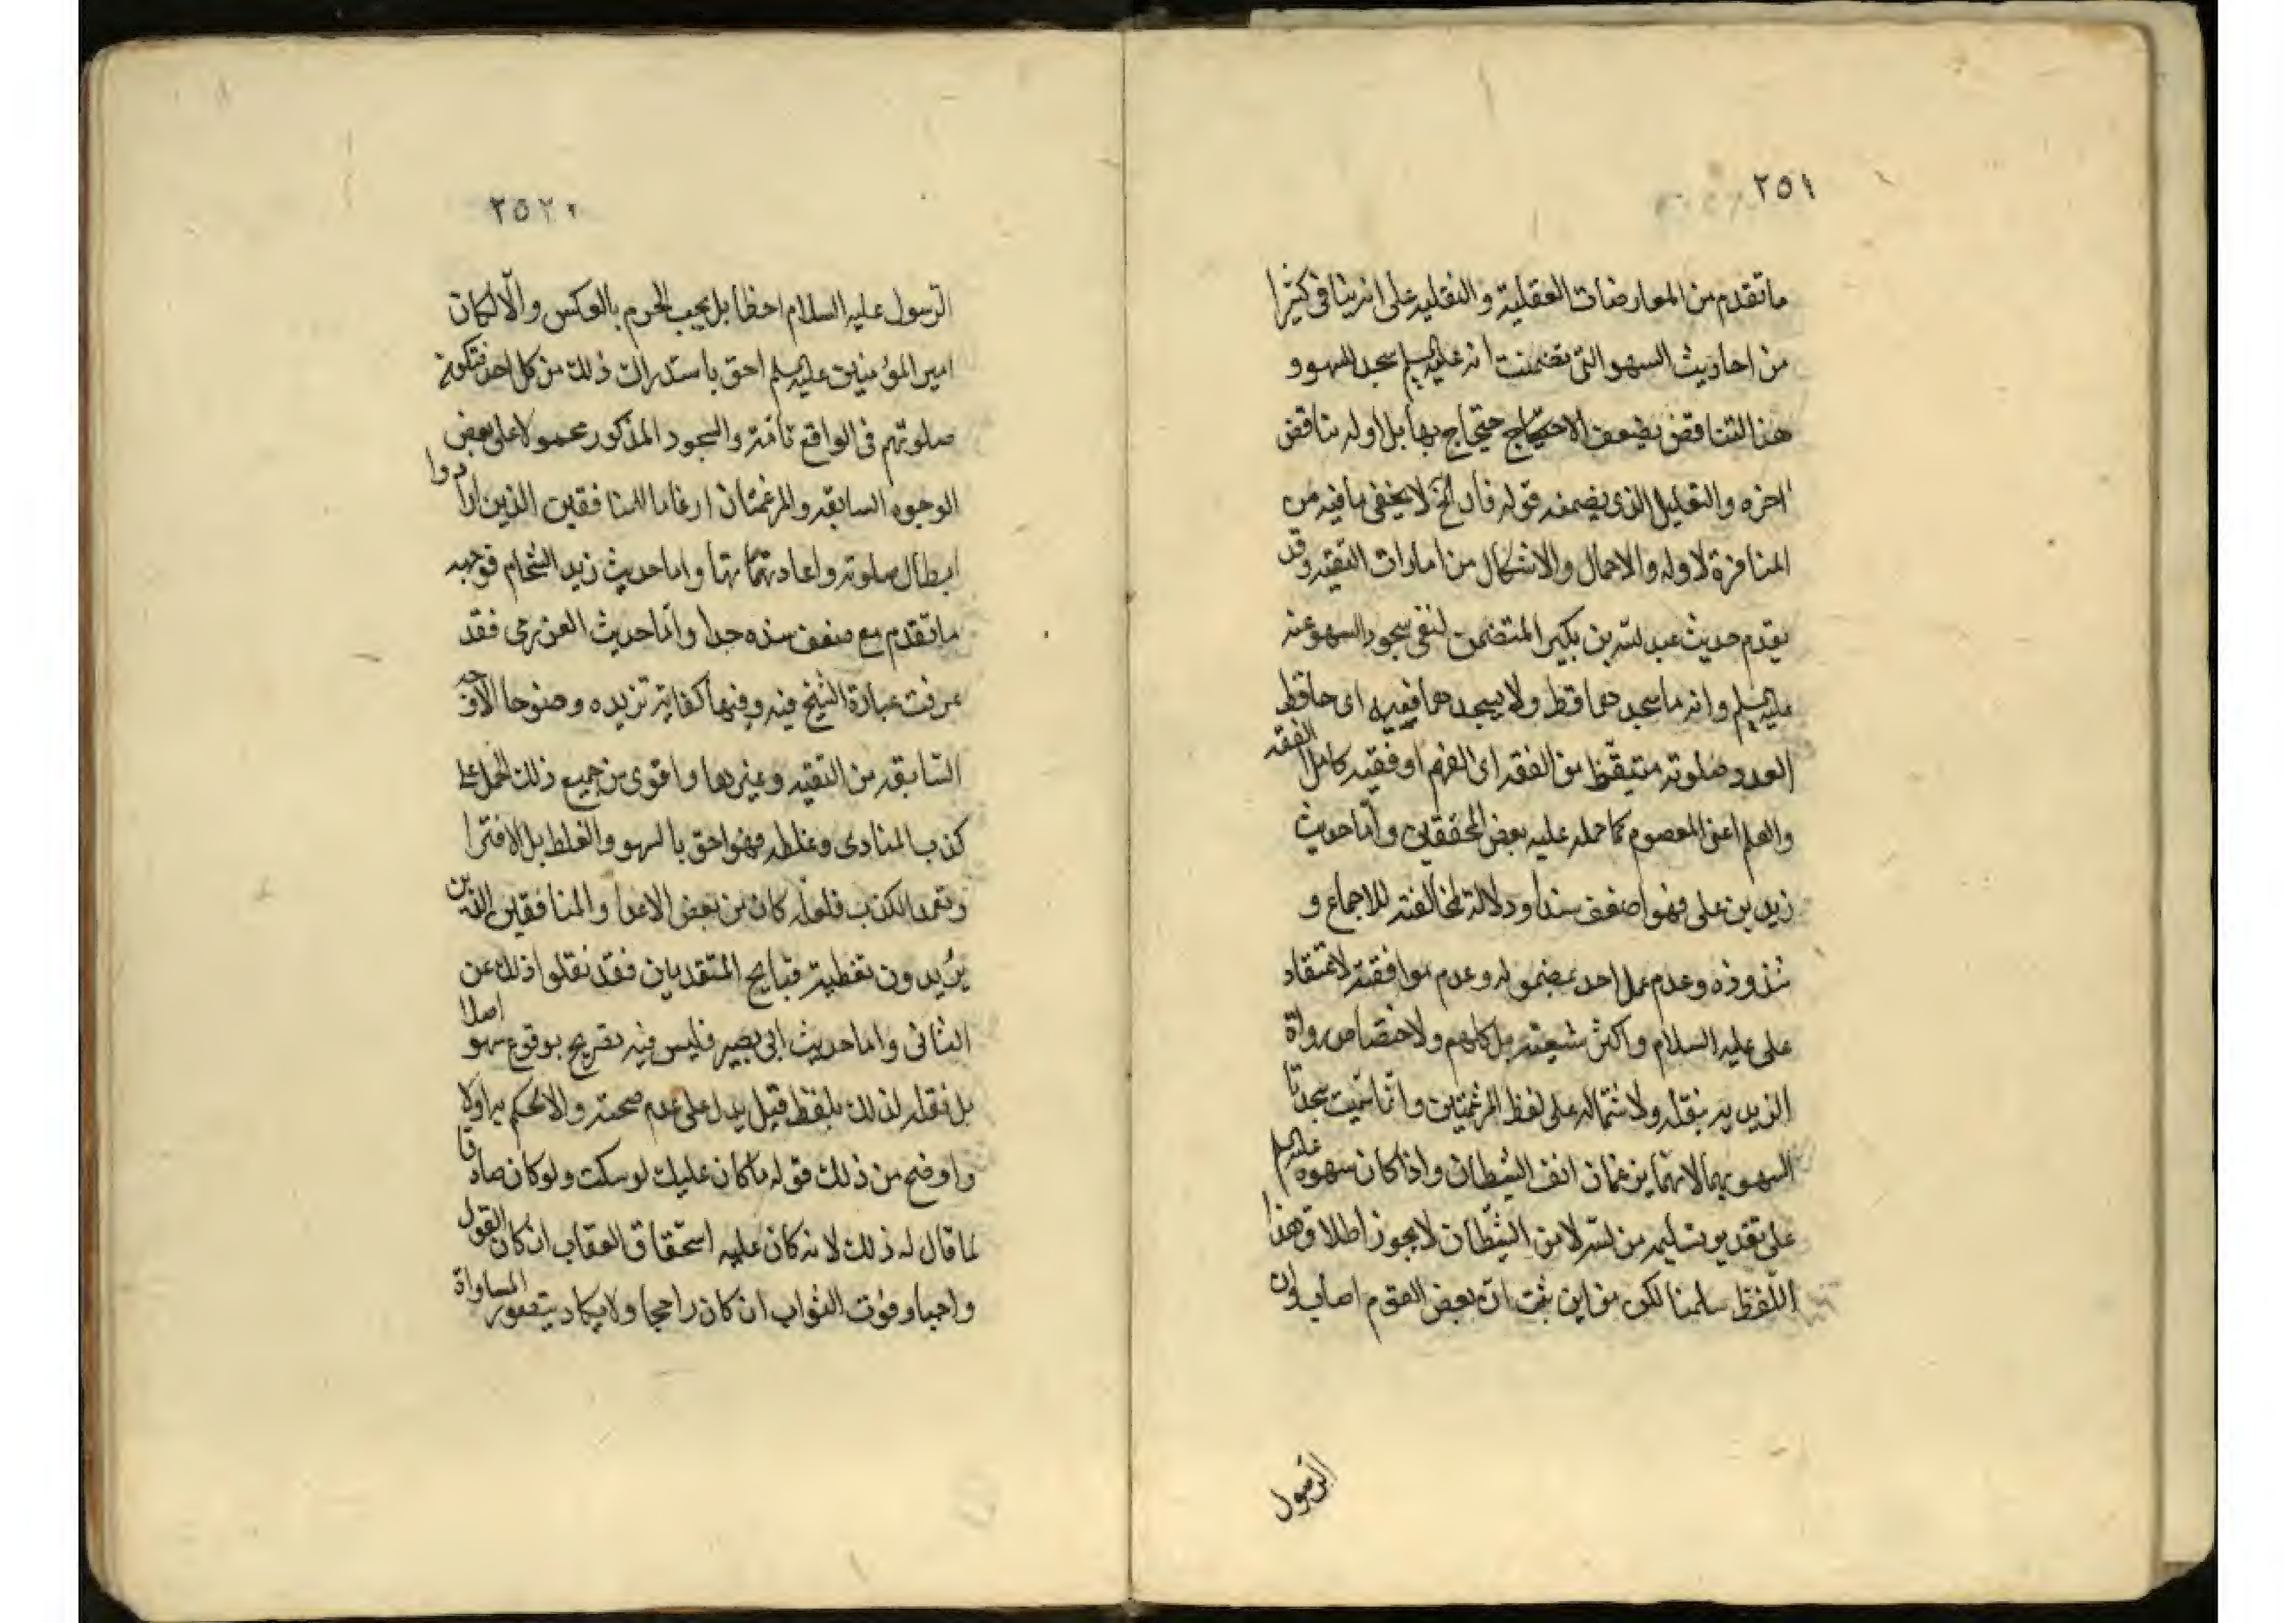 ٢٥١
ما تقدم من المعارضات العقلية و النقليه على انه ينافى كثيرا
من احاديث السهو التى تضمنت انه عليه السلم سجد السهو و
هذا التناقض يضعف الاحتجاج بها بل اوله يناقض
اخره و التعليل الذى يضمنه قوله فان الخ لا يخفى ما فيه من
المنافرة لاوله و الاجمال و الاشكال من امارات التقيه وقد
يقدم حديث عبد لله بن بكير المتضمن لنفى سجود السهو عنه
عليه السلم و انه ما سجدهما قط و لا يسجدهما فقيه اى حافظ
لعدد صلوته متيقظ من الفقه اى الفهم او فقيه كامل الفقه
والعلم اعنى المعصوم كما حمله عليه بعض المحققين و اما حديث
زيد بن على فهو اضعف سندا و دلالة لمخالفته للاجماع و
شذوذه و عدم عمل احد بمضمونه و عدم موافقته لاعتقاد
على عليه السلام و اكثر شيعته بل كلهم ولاختصاص رواة
الزيديه بنقله و لاشتماله على لفظ المرغمتين و انما سميت سجدتا
السهو بهما لانهما يرغمان انف الشيطان و اذا كان سهوه عليه السلم
على تقدير تسليمه من لله لا من الشيطان لا يجوز اطلاق هذا
اللفظ سلمنا لكن من اين ثبت ان بعض القوم اصاب وان
الرسول
٢٥٢
الرسول عليه السلام اخطا بل يجب الجزم بالعكس و الّا لكان
امير المؤمنين عليه السلم احق باستدراك ذلك من كل احد فتكون
صلوتهم فى الواقع تامة و السجود المذكور محمولا على بعض
الوجوه السابقه و المرغمتان ارغاما للمنافقين الذين ارادوا
ابطال صلوته و اعادتهما و اما حديث زيد الشحام فوجهه
ما تقدم مع ضعف سنده جدا و اما حديث العزرمى فقد
عرفت عبارة الشيخ فيه و فيها كفاية تزيده وضوحا الاوجه
السابقه من التقيه و غيرها و اقوى من جميع ذلك الحمل على
كذب المنادى و غلطه فهو احق بالسهو و الغلط بل الافترا
و تعمد الكذب فلعله كان من بعض الاعدا و المنافقين الذين
يريدون تغطية قبايح المتقدمين فقد نقلوا ذلك عن
الثانى و اما حديث ابى بصير فليس فيه تصريح بوقوع سهو اصلا
بل نقله لذلك بلفظ قيل يدل على عدم صحته و الا لحكم به اولا
و اوضح من ذلك قوله ما كان عليك لو سكت و لو كان صادقا
لما قال له ذلك لانه كان عليه استحقاق العقاب ان كان القول
واجبا و فوت الثواب ان كان راجحا و لا يكاد يتصور المساواة